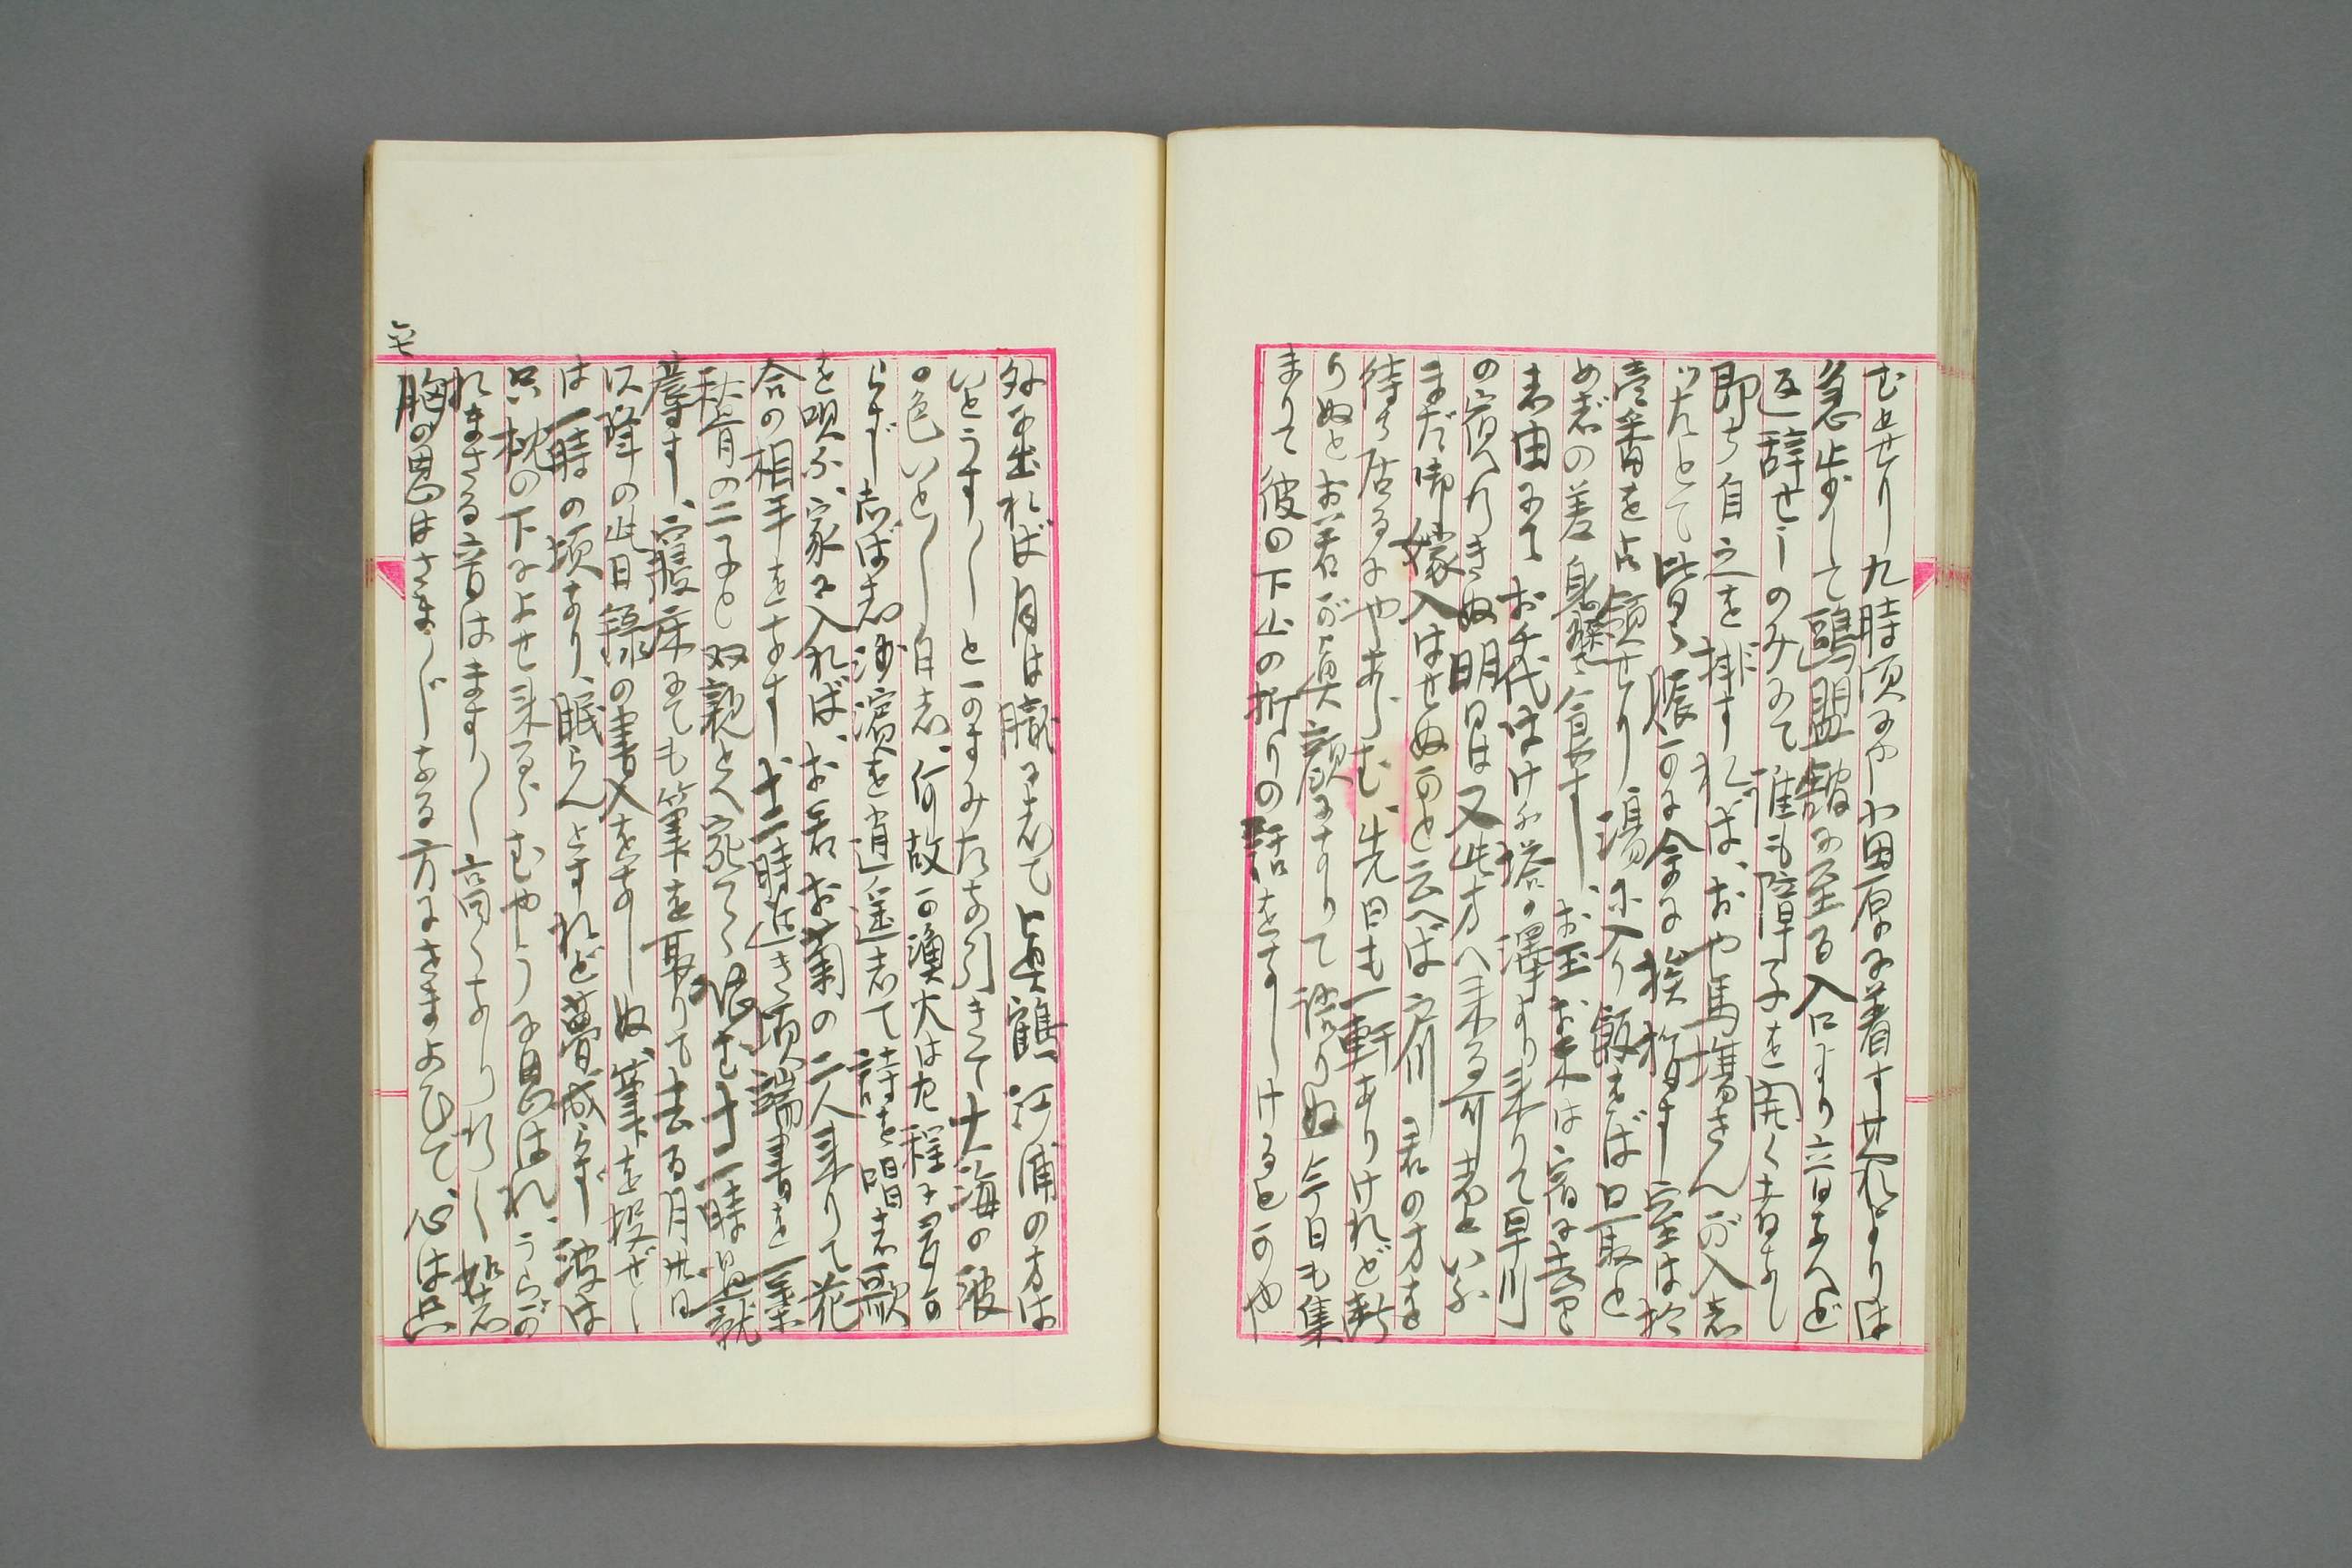 むとせり九時頃にや小田原に着す其れよりは
急歩して鷗盟館に至る入口より音なへど
返辞せしのみにて誰も障子を開く者なし
即ち自之を排すれば、おや馬場さんが入志
つたとて皆々賑かに余に挨拶す室は於
壱番を占領せり湯に入り飯をば口取と
めざの差身鰹にて食す、お玉お米は宿に売
志由にてお千代はけふ塔の澤より来りて早川
の宿へ行きぬ明日は又此方へ来る可志といふ
まだ御嫁入はせぬかと云へば立川君の方を
待ち居るにやあらむ、先日も一軒ありけれど断
りぬとお若が真顔になりて語りぬ今日も集
まりて彼の下山の折りの話をなしけるとかや
外に出れば月は朧に志て真鶴江浦の方は
いとうすしと一のすみたな引きて大海の波
の色いとし白志、何故か漁火は左程に見え
らず志ば志沙濱を逍遥志て詩を唱志歌
を唄ふ、家に入れば、お若お菊の二人来りて花
合の相手をなす十二時近き頃端書を一葉
秋骨の二子と双親とへ宛てゝ認む十二時過就
蓐す、寝床にても筆を取りて去る月廿日
以降の此日録の書入をなしぬ、筆を投ぜし
は一時の頃なり、眠らんとすれど夢成らず波は
只枕の下によせ来るゝむやうに思はれ、うらが
れまさる音はますし高くなり行し如志
胸の思はさまざまなる方にさまよひて、心は只